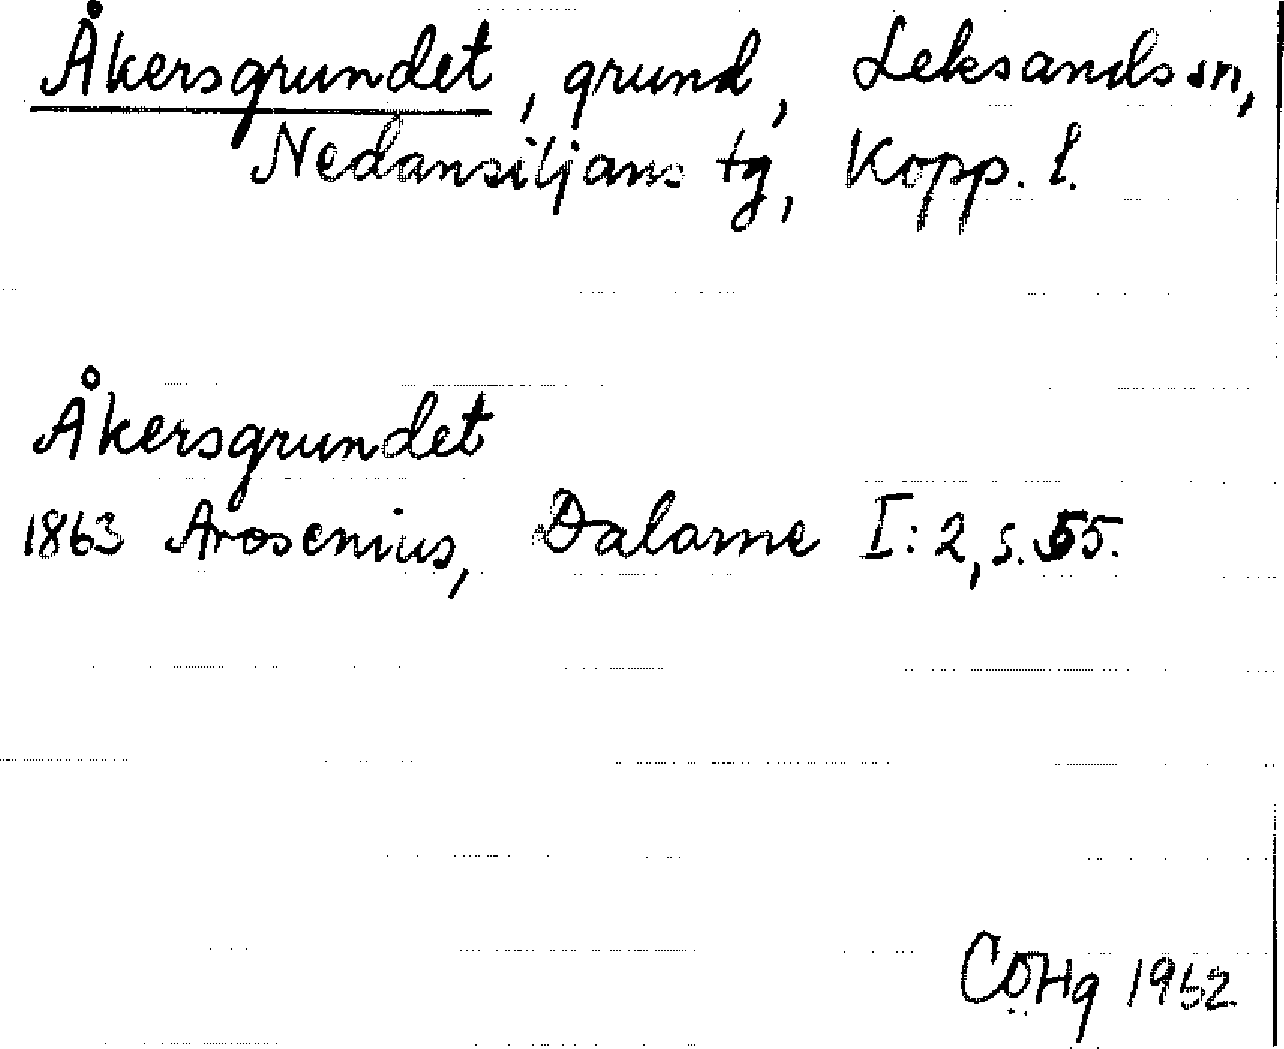 Åkersgrundet, grund, Leksands sn,
Nedansiljans tg, Kopp. l.
Åkersgrundet
1863 Arosenius, Dalarne I:2, s. 55.
1952